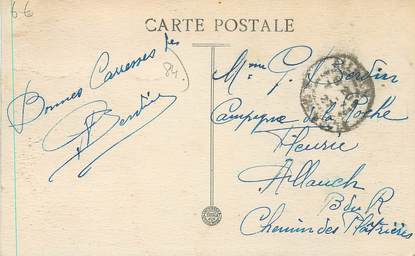 6-6
CARTE POSTALE
Bonnes Caresses des
84.
Mme G.
Campagne de la Roche
Fleurie
Allauch
B du R
Chemin des Plâtrières